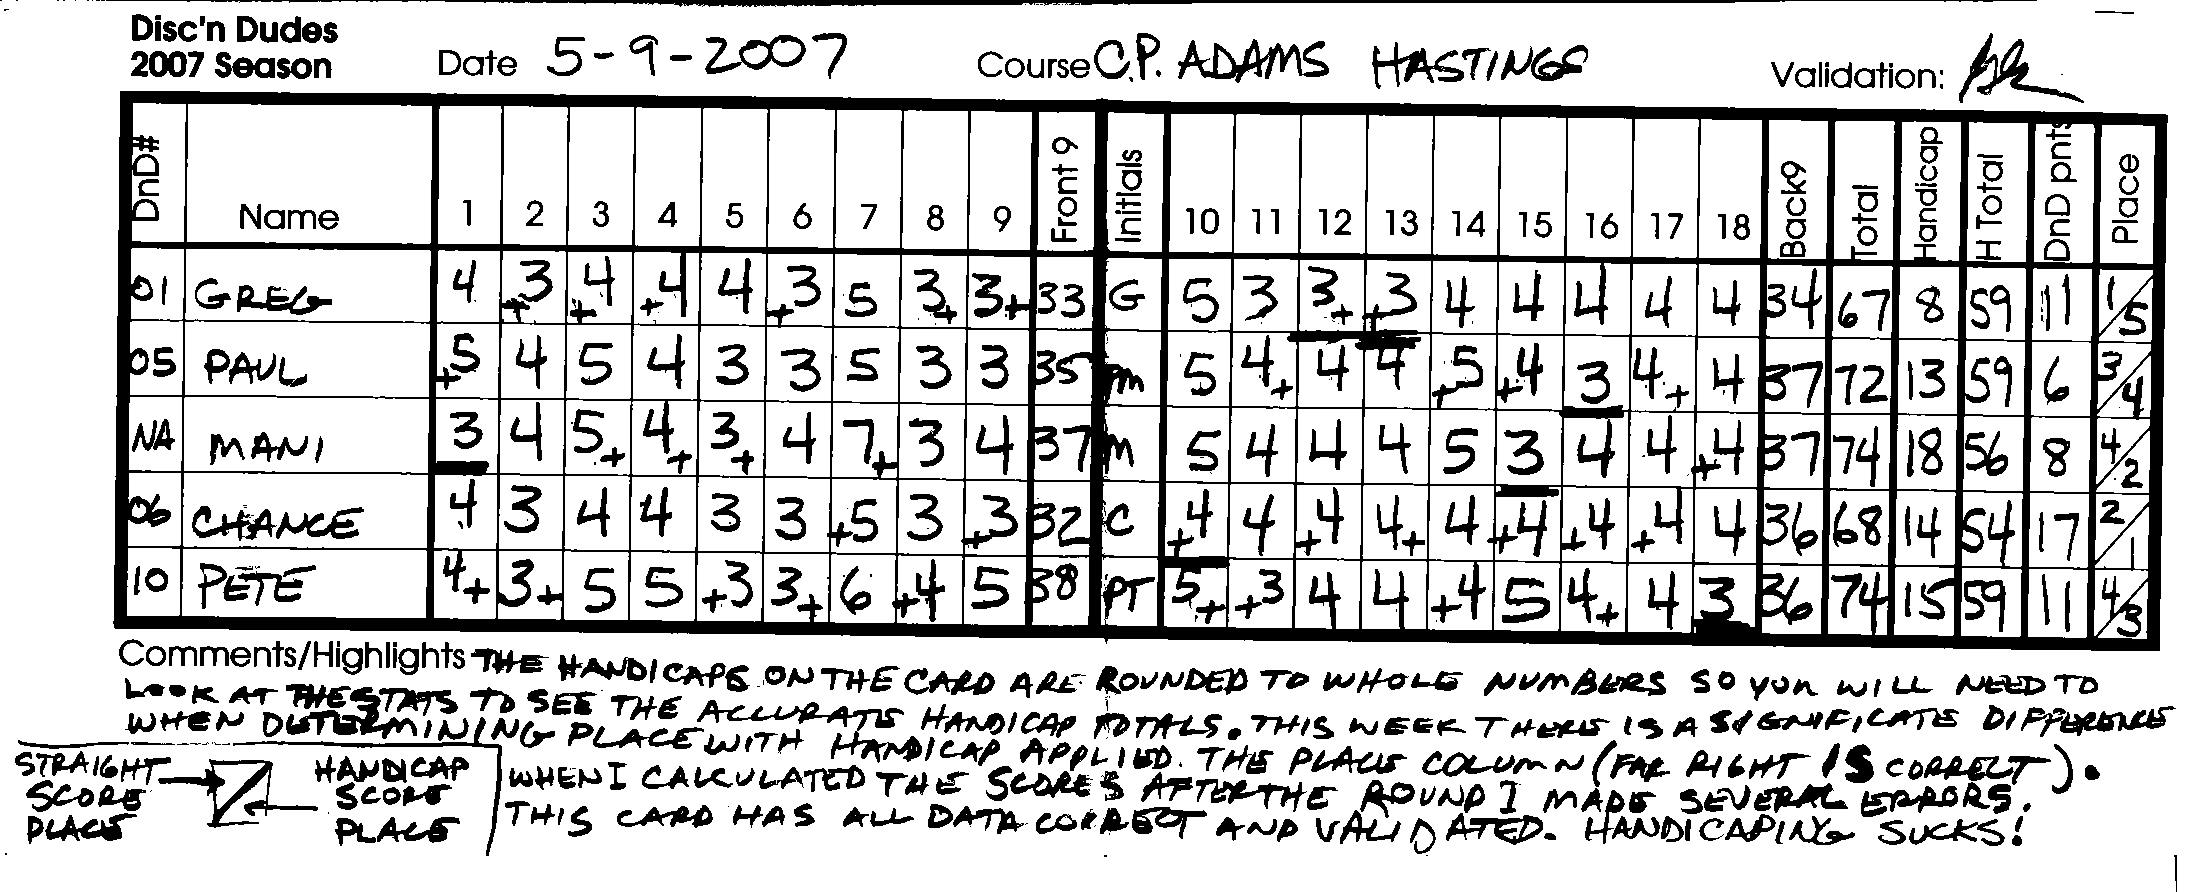 Disc'n Dudes
2007 Season Date 5-9-2007 Course C.P. ADAMS HASTINGS Validation:
DnD# Name 1 2 3 4 5 6 7 8 9 Front 9 Initials 10 11 12 13 14 15 16 17 18 Back9 Total Handicap H Total DnD pnts Place
01 GREG 4 +3 +4 +4 4 +3 5 3+ 3+ 33 G 5 3 3+ +3 4 4 4 4 4 34 67 8 59 11 1/5
05 PAUL +5 4 5 4 3 3 5 3 3 35 PM 5 4+ 4 4 +5 +4 3 4+ 4 37 72 13 59 6 3/4
NA MANI 3 4 5+ 4+ 3+ 4 7+ 3 4 37 M 5 4 4 4 5 3 4 4 +4 37 74 18 56 8 4/2
06 CHANCE 4 3 4 4 3 3 +5 3 +3 32 C +4 4 +4 4+ 4 +4 +4 +4 4 36 68 14 54 17 2/1
10 PETE 4+ 3+ 5 5 +3 3+ 6 +4 5 38 PT 5+ +3 4 4 +4 5 4+ 4 3 36 74 15 59 11 4/3
Comments/Highlights THE HANDICAPS ON THE CARD ARE ROUNDED TO WHOLE NUMBERS SO YOU WILL NEED TO
LOOK AT THE STATS TO SEE THE ACCURATE HANDICAP TOTALS. THIS WEEK THERE IS A SIGNIFICATE DIFFERENCE
WHEN DETERMINING PLACE WITH HANDICAP APPLIED. THE PLACE COLUMN (FAR RIGHT IS CORRECT).
WHEN I CALCULATED THE SCORES AFTER THE ROUND I MADE SEVERAL ERRORS.
THIS CARD HAS ALL DATA CORRECT AND VALIDATED. HANDICAPING SUCKS!
STRAIGHT
SCORE
PLACE
HANDICAP
SCORE
PLACE